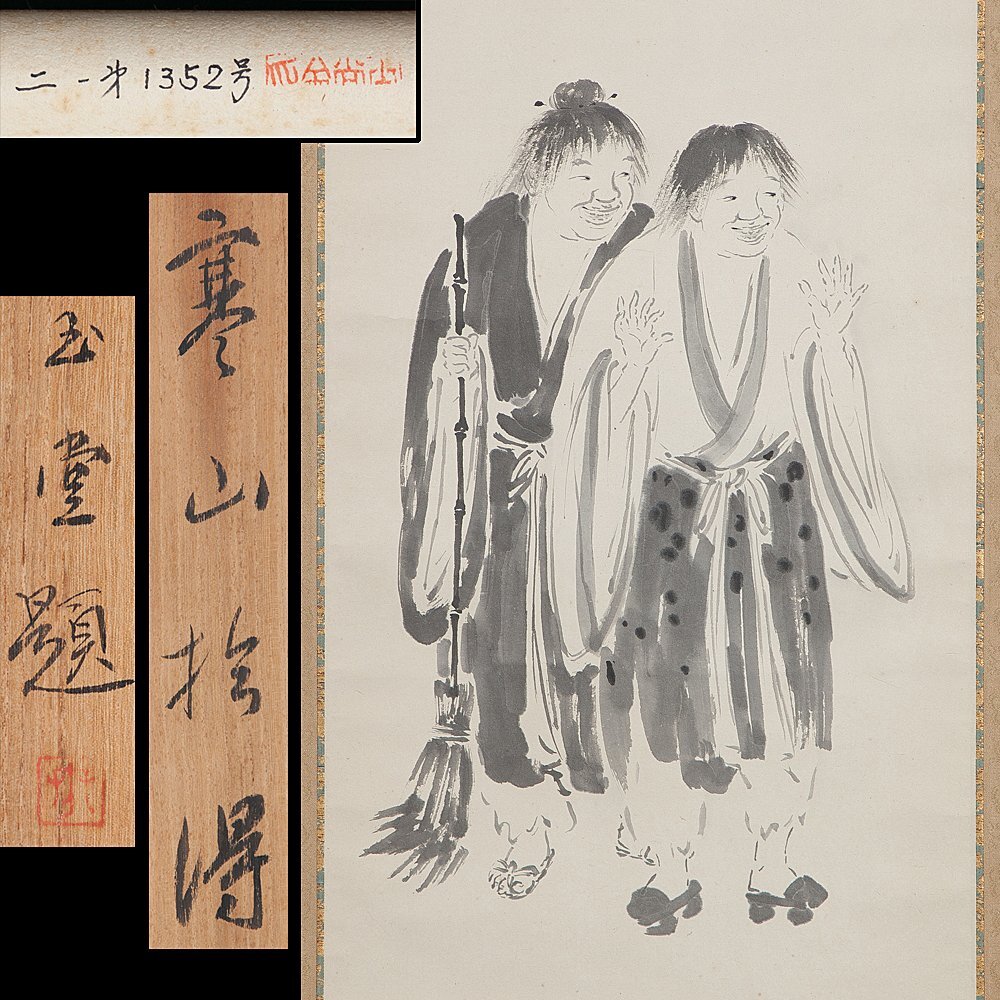 二一才1352号
寒山拾得
玉堂題